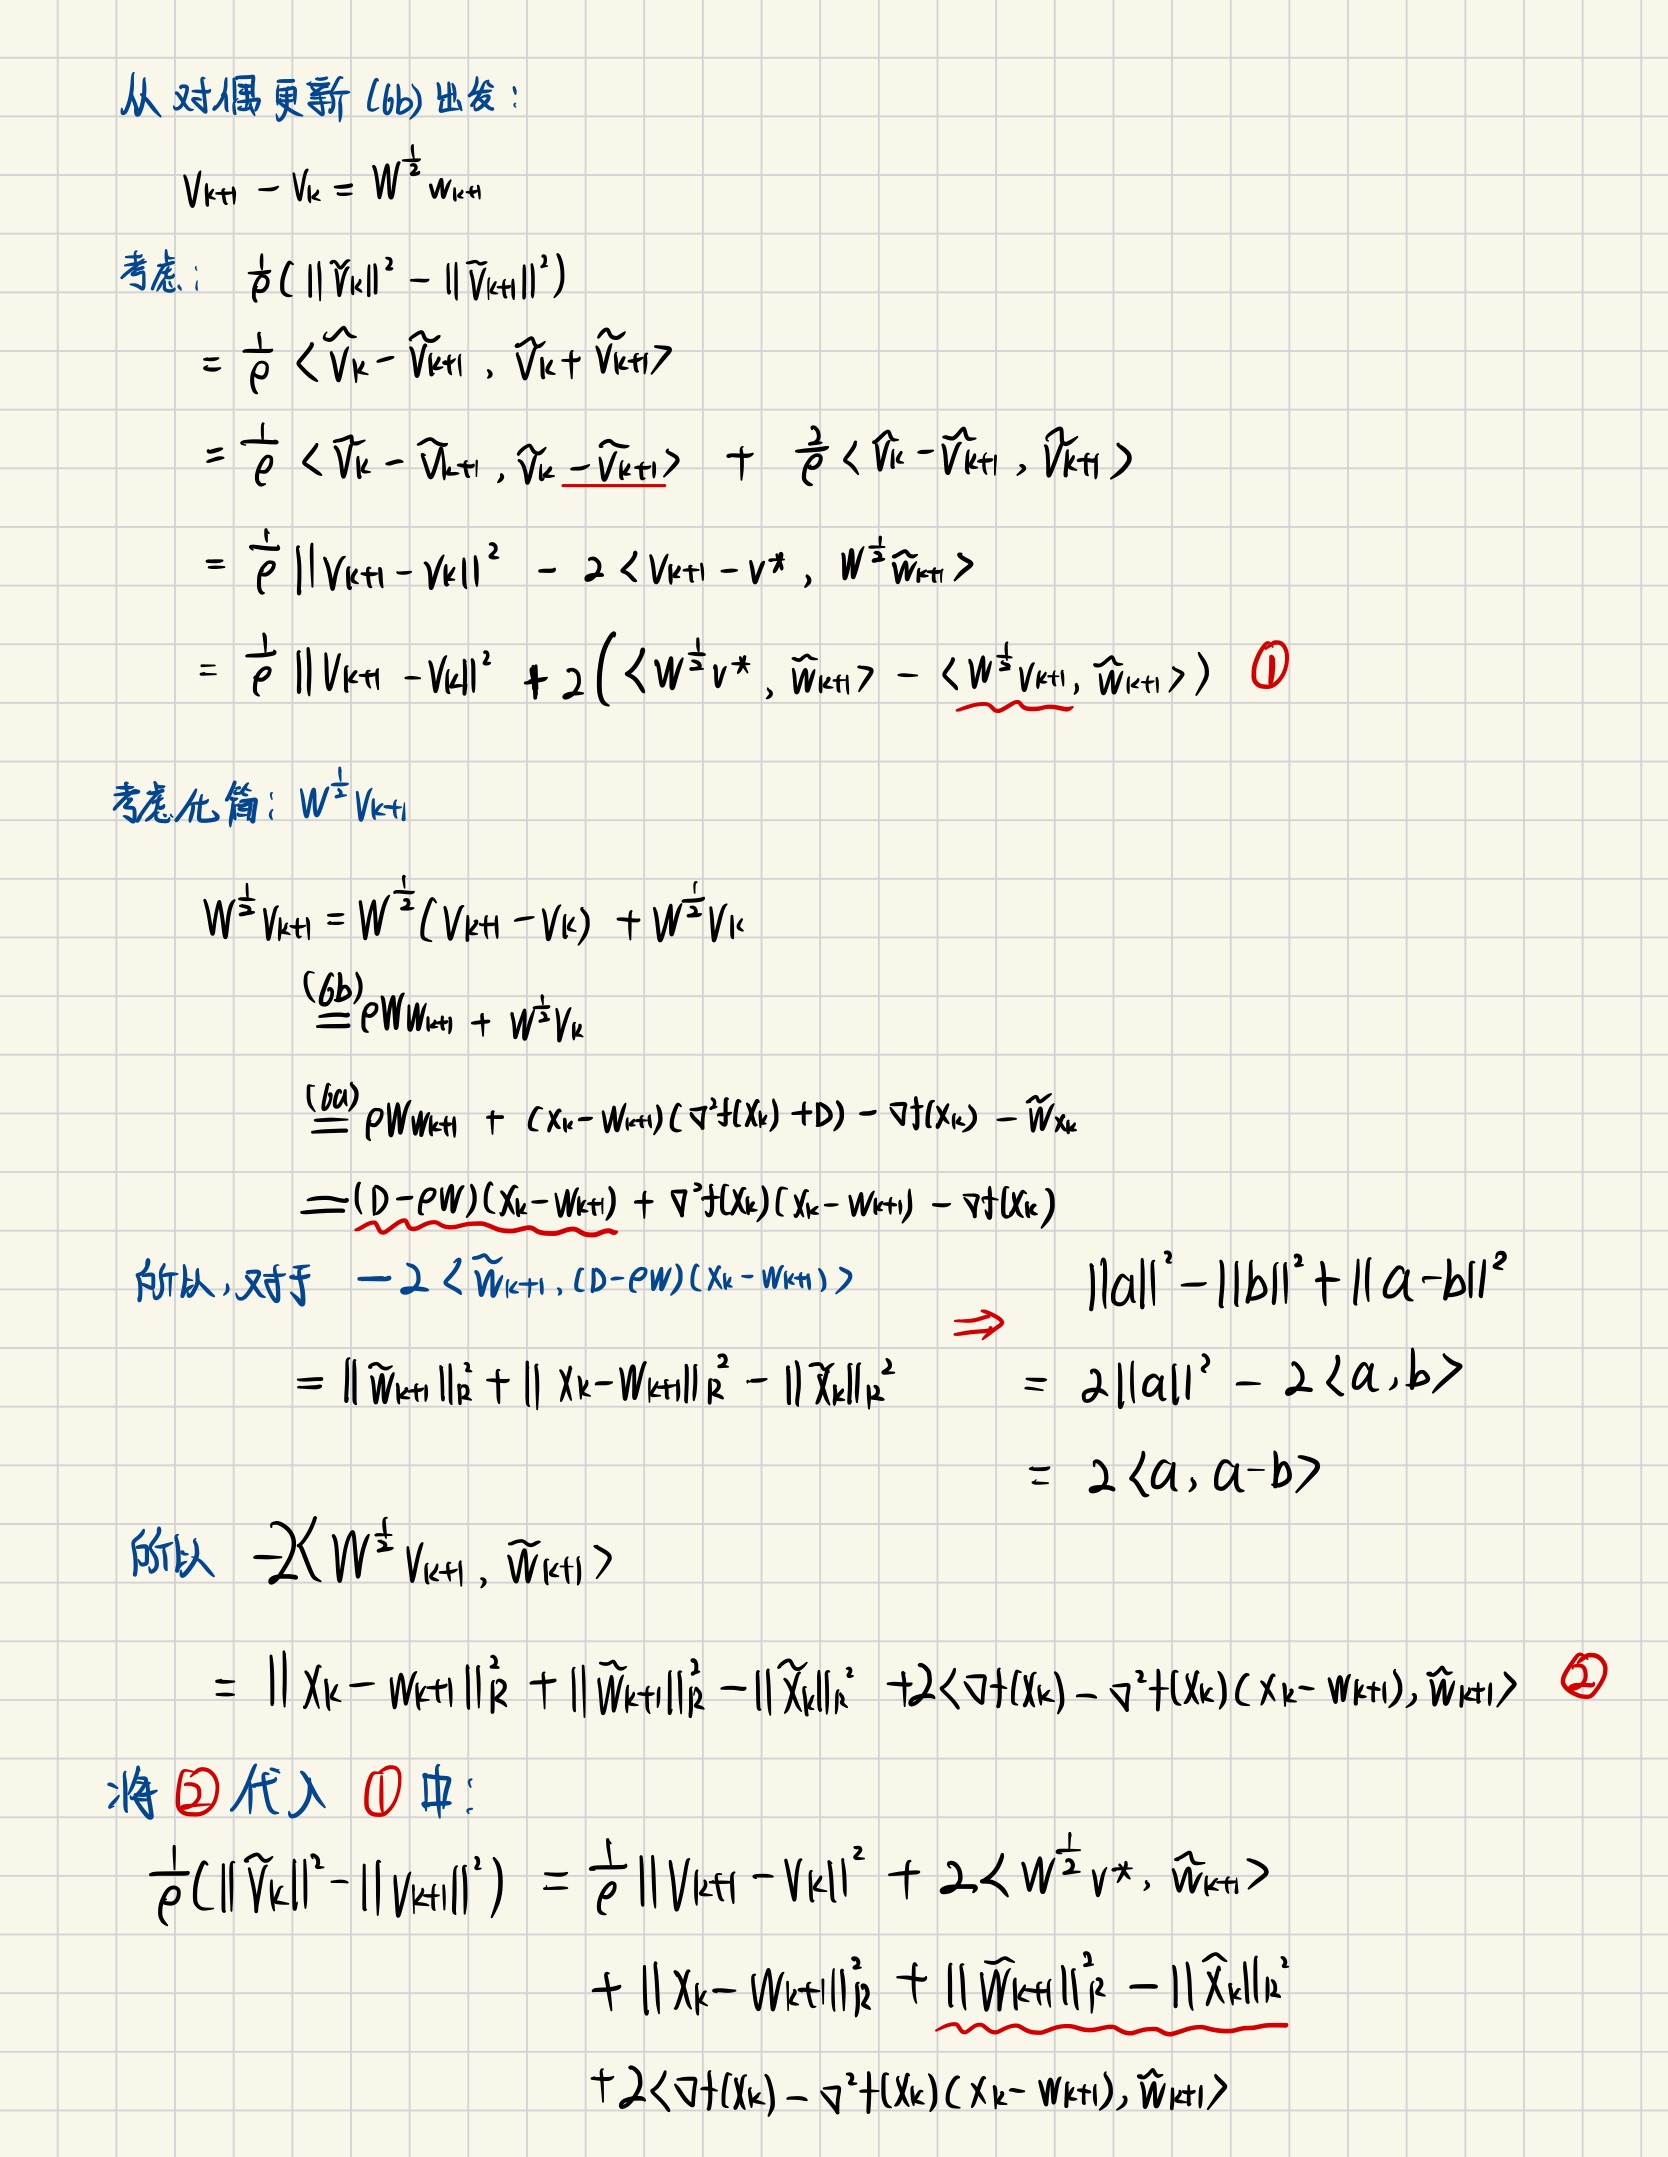 从对偶更新 (6b) 出发：
V_{k+1} - V_k = W^{1/2} w_{k+1}
考虑： 1/ρ (||Ṽ_k||² - ||Ṽ_{k+1}||²)
= 1/ρ <Ṽ_k - Ṽ_{k+1}, Ṽ_k + Ṽ_{k+1}>
= 1/ρ <Ṽ_k - Ṽ_{k+1}, Ṽ_k - Ṽ_{k+1}> + 2/ρ <Ṽ_k - Ṽ_{k+1}, Ṽ_{k+1}>
= 1/ρ ||V_{k+1} - V_k||² - 2<V_{k+1} - v*, W^{1/2} w̃_{k+1}>
= 1/ρ ||V_{k+1} - V_k||² + 2(<W^{1/2} v*, w̃_{k+1}> - <W^{1/2} V_{k+1}, w̃_{k+1}>) ①
考虑化简： W^{1/2} V_{k+1}
W^{1/2} V_{k+1} = W^{1/2}(V_{k+1} - V_k) + W^{1/2} V_k
(6b)
= ρW w_{k+1} + W^{1/2} V_k
(6a)
= ρW w_{k+1} + (x_k - w_{k+1})(∇²f(x_k) + D) - ∇f(x_k) - w̃_{x_k}
= (D - ρW)(x_k - w_{k+1}) + ∇²f(x_k)(x_k - w_{k+1}) - ∇f(x_k)
所以，对于 -2<w̃_{k+1}, (D - ρW)(x_k - w_{k+1})>
= ||w̃_{k+1}||²_R + ||x_k - w_{k+1}||²_R - ||x̃_k||²_R
⇒ ||a||² - ||b||² + ||a-b||²
= 2||a||² - 2<a, b>
= 2<a, a-b>
所以 -2<W^{1/2} V_{k+1}, w̃_{k+1}>
= ||x_k - w_{k+1}||²_R + ||w̃_{k+1}||²_R - ||x̃_k||²_R + 2<∇f(x_k) - ∇²f(x_k)(x_k - w_{k+1}), w̃_{k+1}> ②
将 ② 代入 ① 中：
1/ρ (||Ṽ_k||² - ||V_{k+1}||²) = 1/ρ ||V_{k+1} - V_k||² + 2<W^{1/2} v*, w̃_{k+1}>
+ ||x_k - w_{k+1}||²_R + ||w̃_{k+1}||²_R - ||x̃_k||²_R
+ 2<∇f(x_k) - ∇²f(x_k)(x_k - w_{k+1}), w̃_{k+1}>